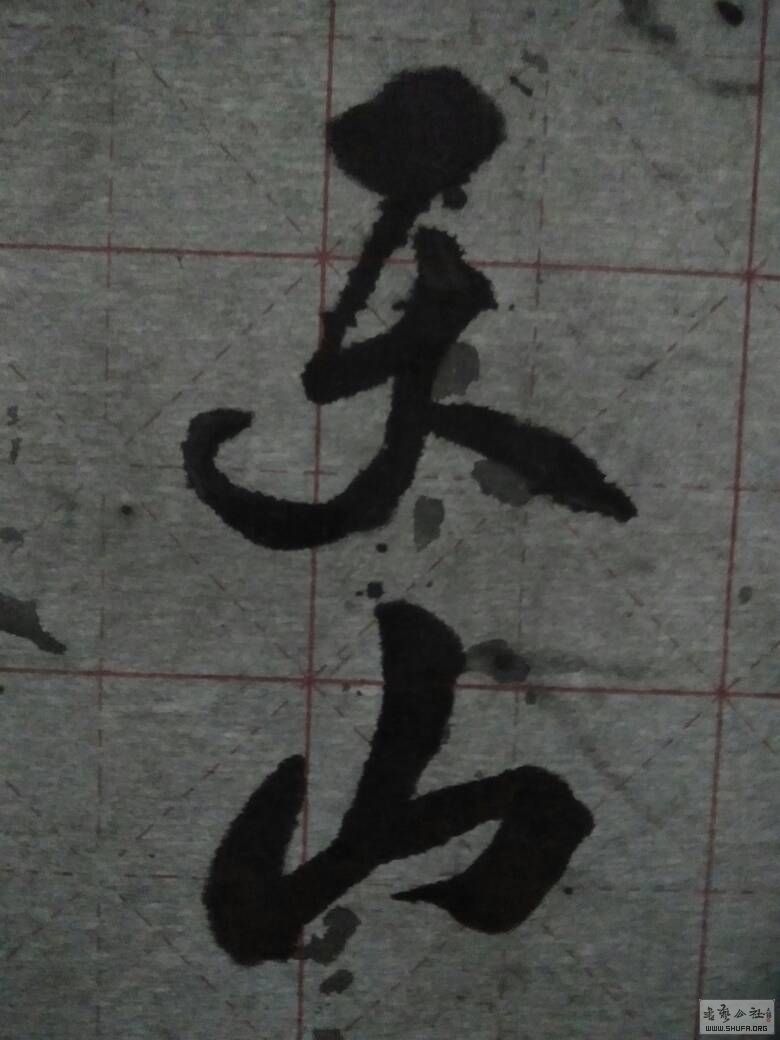 天山
書藝公社
WWW.SHUFA.ORG